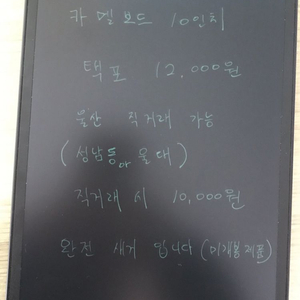 카멜보드 10인치
택포 12,000원
울산 직거래 가능
(성남동or울대)
직거래 시 10,000원
완전 새거 입니다 (미개봉제품)